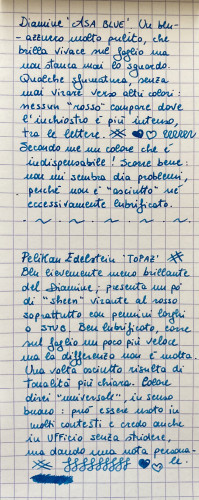 Diamine 'ASA BLUE'. Un blu-
-azzurro molto pulito, che
brilla vivace sul foglio ma
non stanca mai lo sguardo.
Qualche sfumatura, senza
mai virare verso altri colori:
nessun "rosso" compare dove
l'inchiostro è più intenso,
tra le lettere.
Secondo me un colore che è
indispensabile! Scorre bene:
non mi sembra dia problemi,
perché non è "asciutto" né
eccessivamente lubrificato.
Pelikan Edelstein 'TOPAZ'
Blu lievemente meno brillante
del Diamine; presenta un pò
di "sheen" virante al rosso
soprattutto con pennini larghi
o STUB. Ben lubrificato, corre
sul foglio un poco più veloce
ma la differenza non è molta.
Una volta asciutto risulta di
tonalità più chiara. Colore
direi "universale", in senso
buono: può essere usato in
molti contesti e credo anche
in UFFicio senza stridere,
ma dando una nota persona-
le.